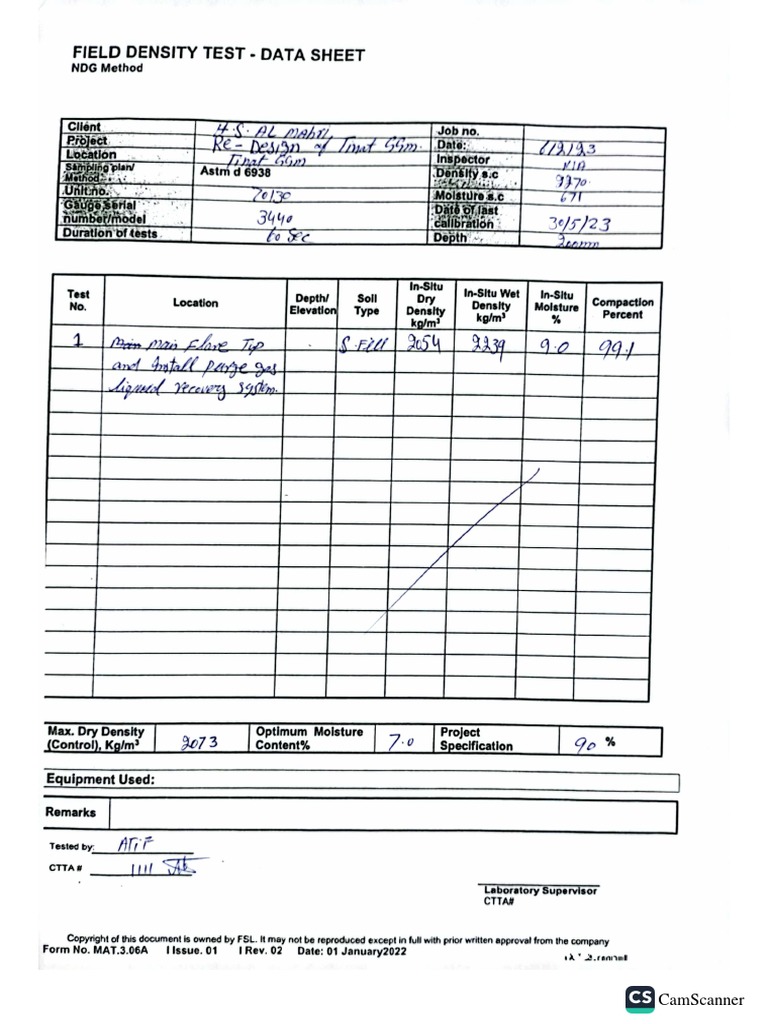 FIELD DENSITY TEST - DATA SHEET
NDG Method
Client H.S. AL MAHRI Job no.
Project Re-Design of Tinat GGm. Date: 6/9/23
Location Tinat GGm Inspector N/A
Sampling plan/ Method Astm d 6938 Density s.c 9270
Unit no. 20/30 Moisture s.c 671
Gauge serial number/model 3440 Date of last calibration 30/5/23
Duration of tests 60 Sec Depth 200mm
Test No. Location Depth/ Elevation Soil Type In-Situ Dry Density kg/m³ In-Situ Wet Density kg/m³ In-Situ Moisture % Compaction Percent
1 Main Flare Tip S.Fill 2054 2239 9.0 99.1
and Install purge gas
liqued recovery system.
Max. Dry Density (Control), Kg/m³ 2073 Optimum Moisture Content% 7.0 Project Specification 90 %
Equipment Used:
Remarks
Tested by: ATIF
CTTA # 1111
Laboratory Supervisor
CTTA#
Copyright of this document is owned by FSL. It may not be reproduced except in full with prior written approval from the company
Form No. MAT.3.06A I Issue. 01 I Rev. 02 Date: 01 January2022
CS CamScanner